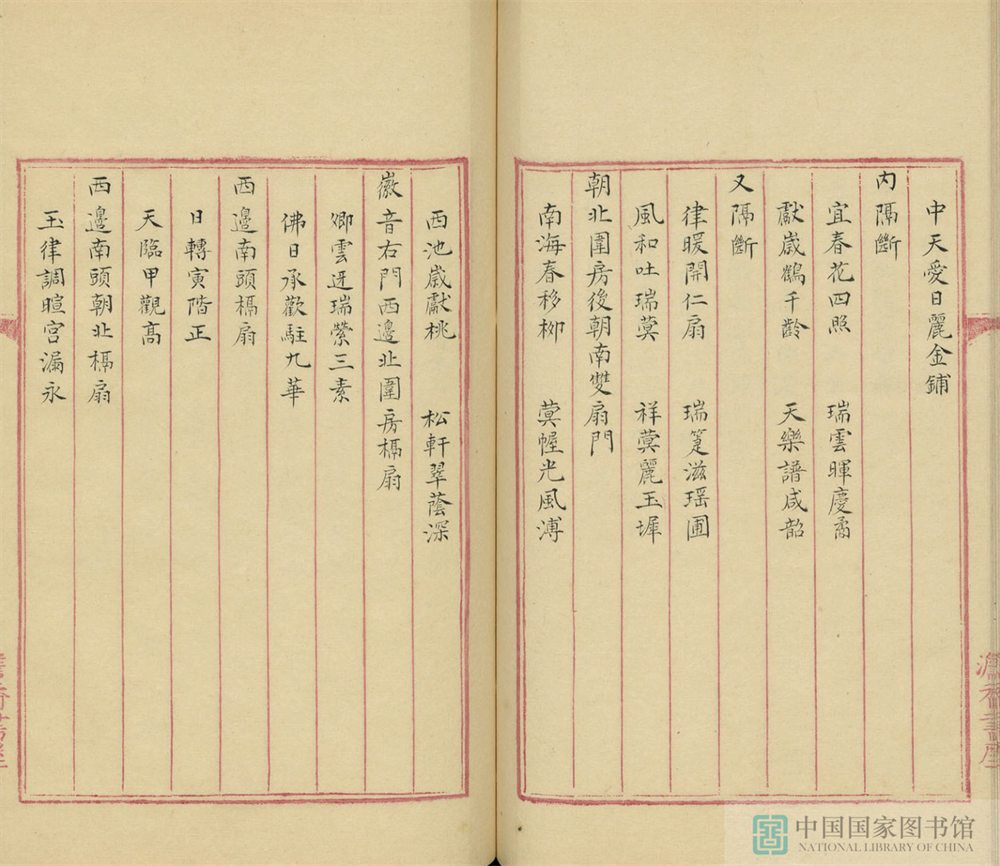 中天愛日麗金鋪
内隔斷
宜春花四照　瑞雲暉慶矞
獻歲鶴千齡　天樂譜咸韶
又隔斷
律暖開仁扇　瑞箑滋瑶圃
風和吐瑞蓂　祥蓂麗玉墀
朝北圍房後朝南雙扇門
南海春移柳　蓂幄光風溥
西池歲獻桃　松軒翠蔭深
徽音右門西邊北圍房槅扇
卿雲迓瑞縈三素
佛日承歡駐九華
西邊南頭槅扇
日轉寅階正
天臨甲觀高
西邊南頭朝北槅扇
玉律調暄宫漏永
中国国家图书馆
NATIONAL LIBRARY OF CHINA